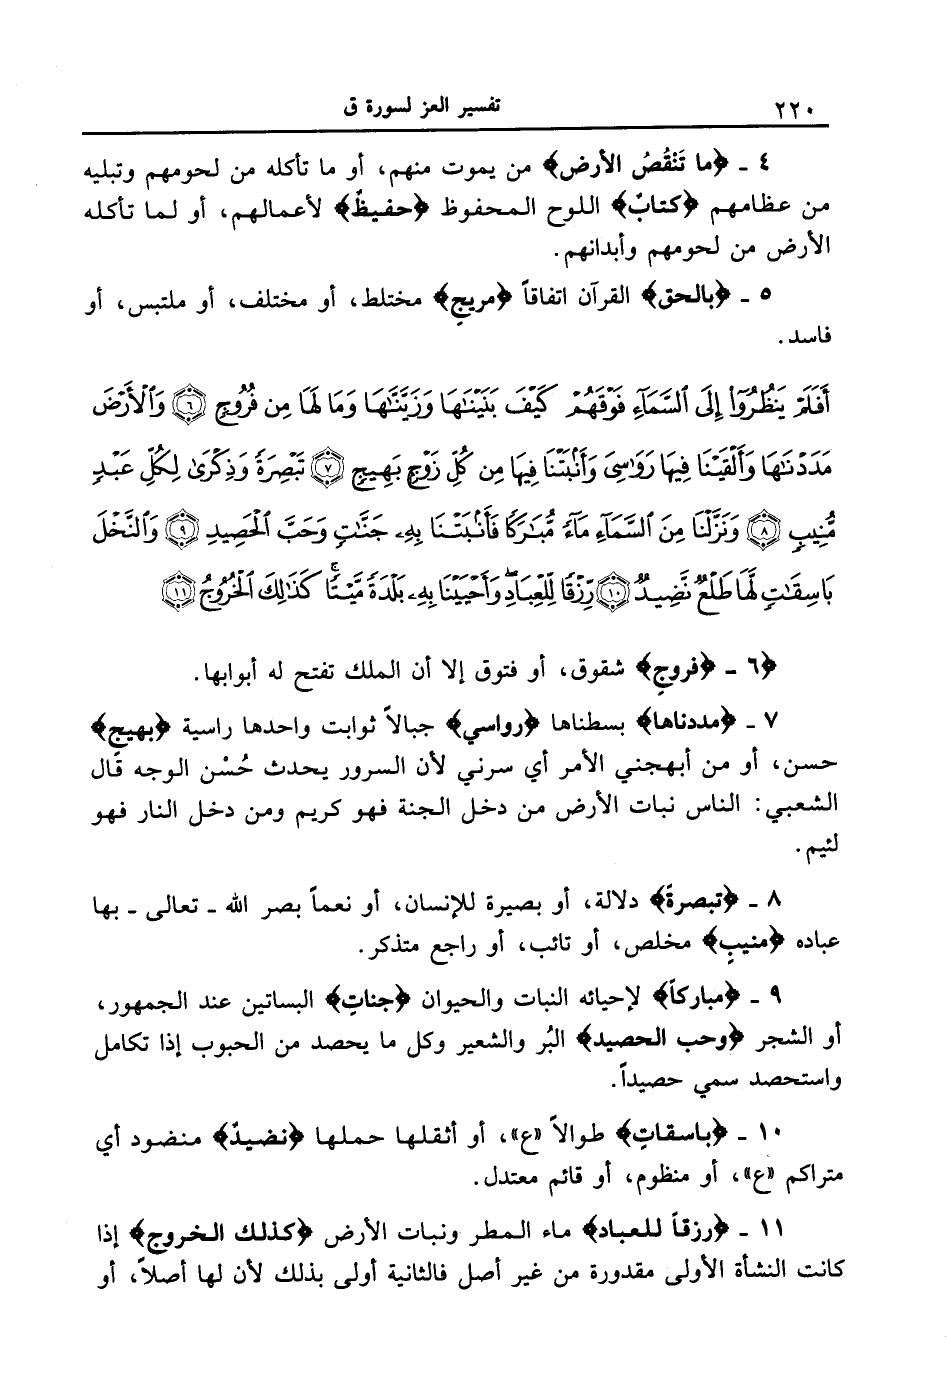 ٢٢٠ تفسير العز لسورة ق
٤ ـ ﴿ما تَنْقُصُ الأرض﴾ من يموت منهم، أو ما تأكله من لحومهم وتبليه
من عظامهم ﴿كتابٌ﴾ اللوح المحفوظ ﴿حفيظٌ﴾ لأعمالهم، أو لما تأكله
الأرض من لحومهم وأبدانهم.
٥ ـ ﴿بالحق﴾ القرآن اتفاقاً ﴿مريجٍ﴾ مختلط، أو مختلف، أو ملتبس، أو
فاسد.
أَفَلَمْ يَنظُرُوٓا۟ إِلَى ٱلسَّمَآءِ فَوْقَهُمْ كَيْفَ بَنَيْنَٰهَا وَزَيَّنَّٰهَا وَمَا لَهَا مِن فُرُوجٍ ٦ وَٱلْأَرْضَ
مَدَدْنَٰهَا وَأَلْقَيْنَا فِيهَا رَوَٰسِىَ وَأَنۢبَتْنَا فِيهَا مِن كُلِّ زَوْجٍۭ بَهِيجٍ ٧ تَبْصِرَةً وَذِكْرَىٰ لِكُلِّ عَبْدٍ
مُّنِيبٍ ٨ وَنَزَّلْنَا مِنَ ٱلسَّمَآءِ مَآءً مُّبَٰرَكًا فَأَنۢبَتْنَا بِهِۦ جَنَّٰتٍ وَحَبَّ ٱلْحَصِيدِ ٩ وَٱلنَّخْلَ
بَاسِقَٰتٍ لَّهَا طَلْعٌ نَّضِيدٌ ١٠ رِّزْقًا لِّلْعِبَادِ ۖ وَأَحْيَيْنَا بِهِۦ بَلْدَةً مَّيْتًا ۚ كَذَٰلِكَ ٱلْخُرُوجُ ١١
﴿٦ ـ ﴿فروجٍ﴾ شقوق، أو فتوق إلا أن الملك تفتح له أبوابها.
٧ ـ ﴿مددناها﴾ بسطناها ﴿رواسي﴾ جبالاً ثوابت واحدها راسية ﴿بهيجٍ﴾
حسن، أو من أبهجني الأمر أي سرني لأن السرور يحدث حُسْن الوجه قال
الشعبي: الناس نبات الأرض من دخل الجنة فهو كريم ومن دخل النار فهو
لئيم.
٨ ـ ﴿تبصرةً﴾ دلالة، أو بصيرة للإنسان، أو نعماً بصر الله ـ تعالى ـ بها
عباده ﴿منيبٍ﴾ مخلص، أو تائب، أو راجع متذكر.
٩ ـ ﴿مباركاً﴾ لإحيائه النبات والحيوان ﴿جناتٍ﴾ البساتين عند الجمهور،
أو الشجر ﴿وحب الحصيد﴾ البُر والشعير وكل ما يحصد من الحبوب إذا تكامل
واستحصد سمي حصيداً.
١٠ ـ ﴿باسقاتٍ﴾ طوالاً «ع»، أو أثقلها حملها ﴿نضيدٌ﴾ منضود أي
متراكم «ع»، أو منظوم، أو قائم معتدل.
١١ ـ ﴿رزقاً للعباد﴾ ماء المطر ونبات الأرض ﴿كذلك الخروج﴾ إذا
كانت النشأة الأولى مقدورة من غير أصل فالثانية أولى بذلك لأن لها أصلاً، أو